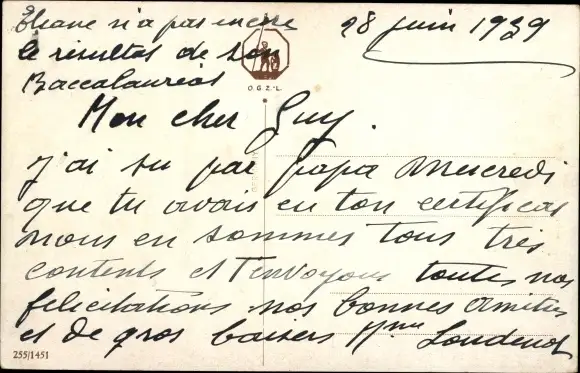 Eliane n'a pas encore
le résultat de son
Baccalaureat
28 juin 1939
O.G.Z.-L.
Mon cher Guy.
J'ai su par papa Mercredi
que tu avais eu ton certificat
nous en sommes tous très
contents et t'envoyons toutes nos
félicitations nos bonnes amitiés
et de gros baisers Mme
255/1451